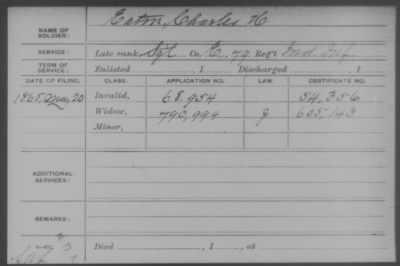 NAME OF SOLDIER: Eaton, Charles H
SERVICE: Late rank, Sgt Co. E. 79 Reg't Ind. Inf.
TERM OF SERVICE: Enlisted , 1 Discharged , 1
DATE OF FILING. CLASS. APPLICATION NO. LAW. CERTIFICATE NO.
1865, 23 Invalid, 68.954 54,356
Widow, 790,994 G 605,143
Minor,
ADDITIONAL SERVICES:
REMARKS:
Died , 1 , at